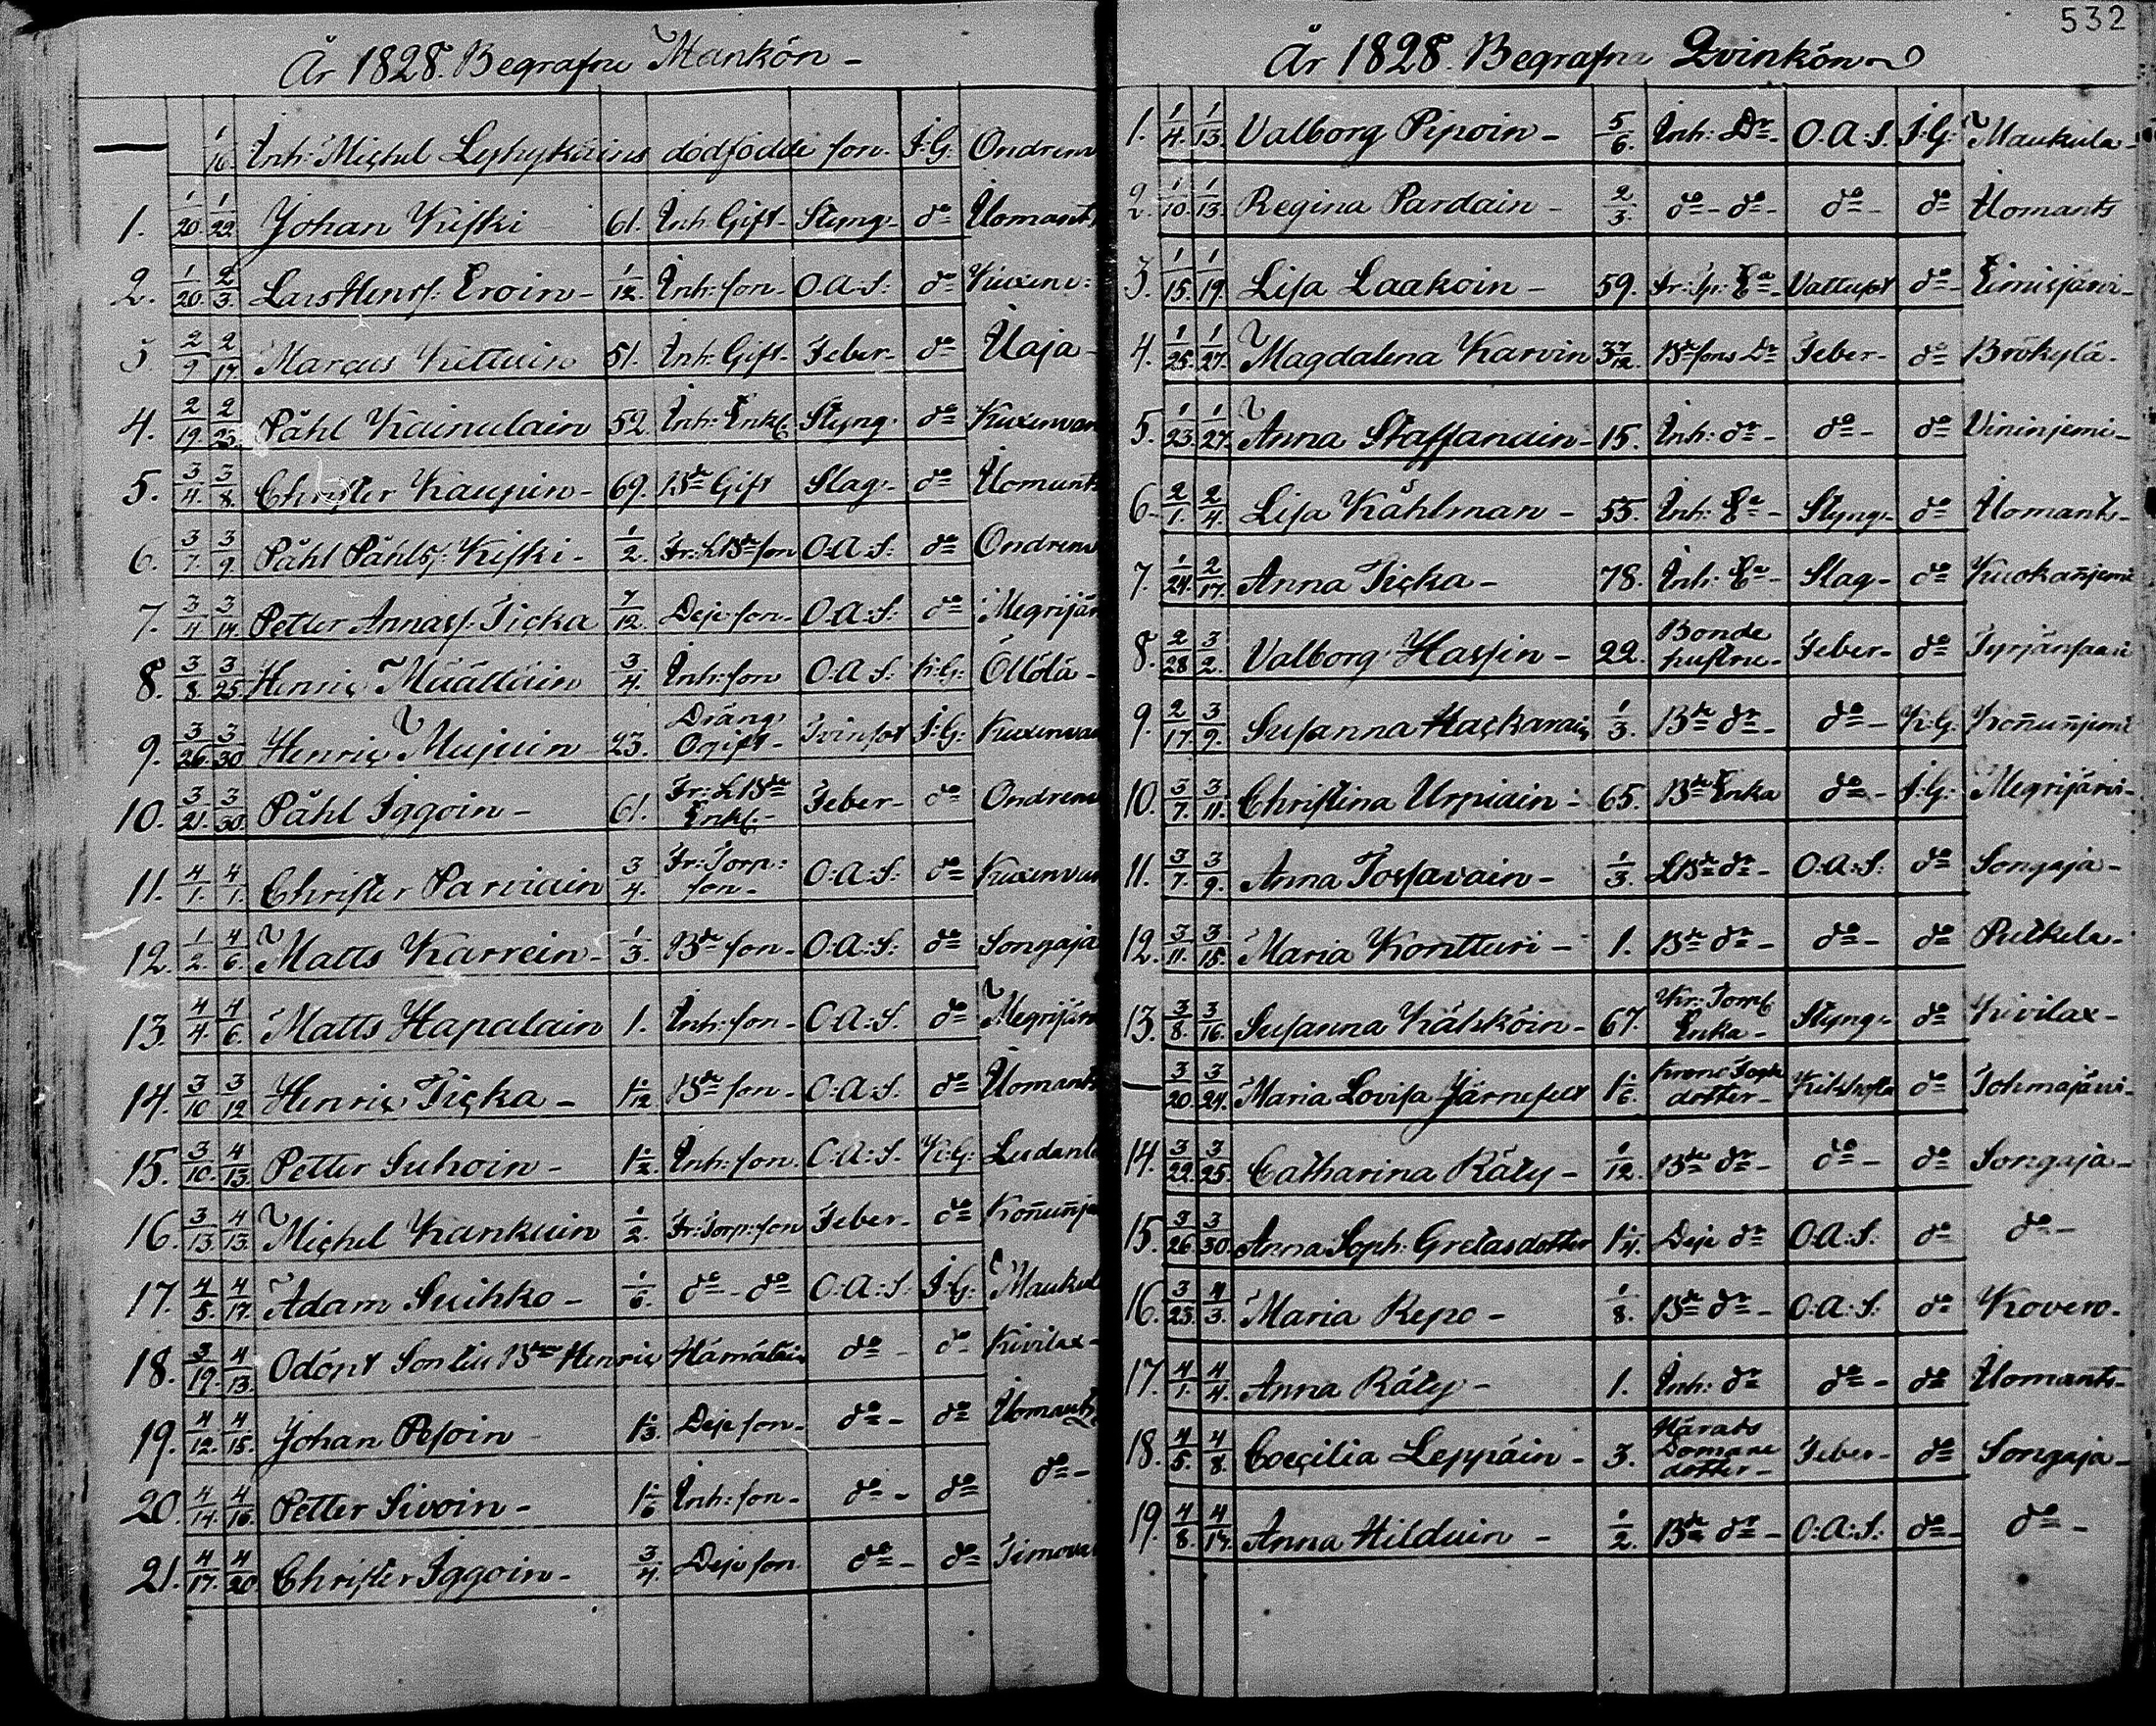 532
År 1828. Begrafne Mankön -
1/16. Inh: Michel Lyhykäins dödfödde son. I:G: Ondren
1. 1/20. 1/22. Johan Kiski 61. Inh: Gift. Styng. do Ilomants
2. 1/20. 2/3. Lars Henrs: Eroin - 1/12. Inh: son. O.A.S: do Kuxen:
3. 2/9. 2/17. Marcus Kettuin 51. Inh: Gift. Feber - do Uaja -
4. 2/19. 2/25. Påhl Kainulain 52. Inh: Enkl. Styng. do Kuxenvar
5. 3/4. 3/8. Christer Kaupin - 69. Bde Gift Slag. do Ilomants
6. 3/7. 3/9. Påhl Påhls: Kiski - 1/2. Fr: LBde son O:A:S: do Ondren
7. 3/4 3/14. Petter Annas: Ticka 7/12. Deje son. O.A.S: do Megrijär
8. 3/8. 3/25 Henric Määttäin 3/4. Inh: son O:A:S: K:G: Öllölä -
9. 3/26. 3/30 Henric Mujuin 23. Dräng Ogift - Tvinsot I:G: Kuxenvaa
10. 3/21. 3/30. Påhl Iggoin - 61. Fr: LBde Enkl. - Feber - do Ondren
11. 4/1. 4/1. Christer Parviain 3/4. Fr: Torp: son - O:A:S: do Kuxenvar
12. 1/2. 4/6. Matts Karrein - 1/3. Bde son - O:A:S: do Songaja
13. 4/4. 4/6. Matts Hapalain 1. Inh: son - O:A:S. do Megrijär
14. 3/10 3/12 Henric Ticka - 1 1/12 Bde son - O:A:S. do Ilomants
15. 3/10. 4/13. Petter Suhoin - 1 1/2. Inh: son. O:A:S. K:G: Ludant
16. 3/13. 4/13. Michel Kankuin 1/2. Fr: Torp: son Feber - do Koñuñje
17. 4/5. 4/17. Adam Suihko - 1/6. do - do O:A:S. I:G: Maukul
18. 3/19. 4/13. Odöpt Son till Bden Henric Hämäläin do - do Kivilax -
19. 4/12. 4/15. Johan Pesoin 1 1/3. Deje son - do - do Ilomants
20. 4/14. 4/16. Petter Sivoin - 1 1/6 Inh: son - do - do do -
21. 4/17. 4/20. Christer Iggoin - 3/4. Deje son do - do Timova
År 1828. Begrafne Qvinkön
1. 1/4. 1/13. Valborg Pipoin - 5/6. Inh: Dr - O.A:S. I:G: Maukula -
2. 1/10. 1/13. Regina Pardain - 2/3. do - do - do - do Ilomants
3. 1/15. 1/19. Lisa Laakoin - 59. Fr: Ea - Vattusot do - Eimisjärvi -
4. 1/25. 1/27. Magdalena Karvin 3 7/12. Bde sons Dr Feber - do Brökylä -
5. 1/23. 1/27. Anna Staffanain - 15. Inh: dr - do - do Vininjemi -
6. 2/1. 2/4. Lisa Kåhlman - 55. Inh: Ea - Styng - do Ilomants -
7. 1/24. 2/17. Anna Ticka - 78. Inh: Ea - Slag - do Kuokañjemi
8. 2/28 3/2. Valborg Hassin - 22. Bonde hustru - Feber - do Tyrjänsaari
9. 2/17. 3/9. Susanna Hackarain 1/3. Bde dr - do - K:G: Koñuñjemi
10. 3/7. 3/11. Christina Urpiain - 65. Bde Enka do - I:G: Megrijärvi -
11. 3/7. 3/9. Anna Tossavain - 1/3. LBde dr - O:A:S: do Songaja -
12. 3/11. 3/15. Maria Kontturi - 1. Bde dr - do - do Putkela -
13. 3/8. 3/16. Susanna Kälsköin - 67. Kr: Torp Enka - Styng - do Kivilax -
3/20. 3/24. Maria Lovisa Järnefelt 1 1/6. Krono Fogde dotter - Kikhosta do Tohmajärvi -
14. 3/22. 3/25. Catharina Räty - 1/12. Bde dr - do - do Songaja -
15. 3/26. 3/30. Anna Soph: Gretasdotter 1 1/4. Deje dr O:A:S: do do -
16. 3/23. 4/3. Maria Repo - 1/8. Bde dr - O:A:S: do Kovero.
17. 4/1. 4/4. Anna Räty - 1. Inh: dr do - do Ilomants -
18. 4/5. 4/8. Coecilia Leppäin - 3. Härads Domare dotter - Feber - do Songaja -
19. 4/8. 4/17. Anna Hilduin - 1/2. Bde dr - O:A:S: do - do -